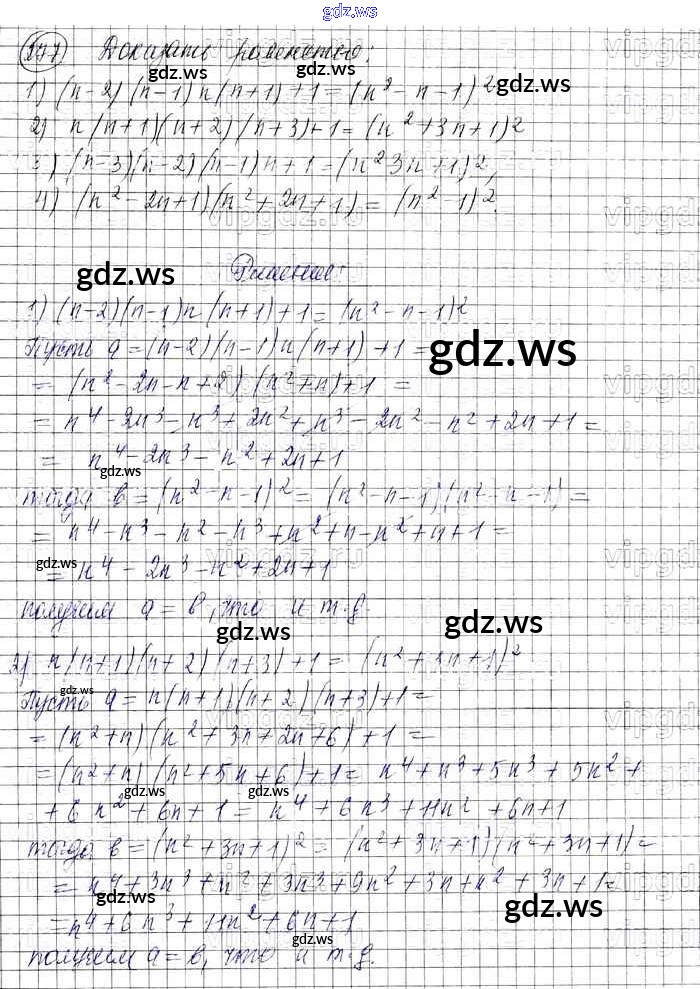 gdz.ws
277 Доказать равенство:
1) (n-2)(n-1)n(n+1)+1=(n²-n-1)²
2) n(n+1)(n+2)(n+3)+1=(n²+3n+1)²
3) (n-3)(n-2)(n-1)n+1=(n²3n+1)²,
4) (n²-2n+1)(n²+2n+1)=(n²-1)².
Решение:
1) (n-2)(n-1)n(n+1)+1=(n²-n-1)²
Пусть a=(n-2)(n-1)n(n+1)+1=
=(n²-2n-n+2)(n²+n)+1=
=n⁴-3n³-n³+2n²+n³-2n²-n²+2n+1=
= n⁴-2n³-n²+2n+1
тогда в=(n²-n-1)²=(n²-n-1)(n²-n-1)=
=n⁴-n³-n²-n³+n²+n-n²+n+1=
=n⁴-2n³-n²+2n+1
получим a=в, что и т.д.
2) n(n+1)(n+2)(n+3)+1=(n²+3n+1)²
Пусть a=n(n+1)(n+2)(n+3)+1=
=(n²+n)(n²+3n+2n+6)+1=
=(n²+n)(n²+5n+6)+1= n⁴+n³+5n³+5n²+
+6n²+6n+1=n⁴+6n³+11n²+6n+1
тогда в=(n²+3n+1)²=(n²+3n+1)(n²+3n+1)=
=n⁴+3n³+n²+3n³+9n²+3n+n²+3n+1=
=n⁴+6n³+11n²+6n+1
получим a=в, что и т.д.